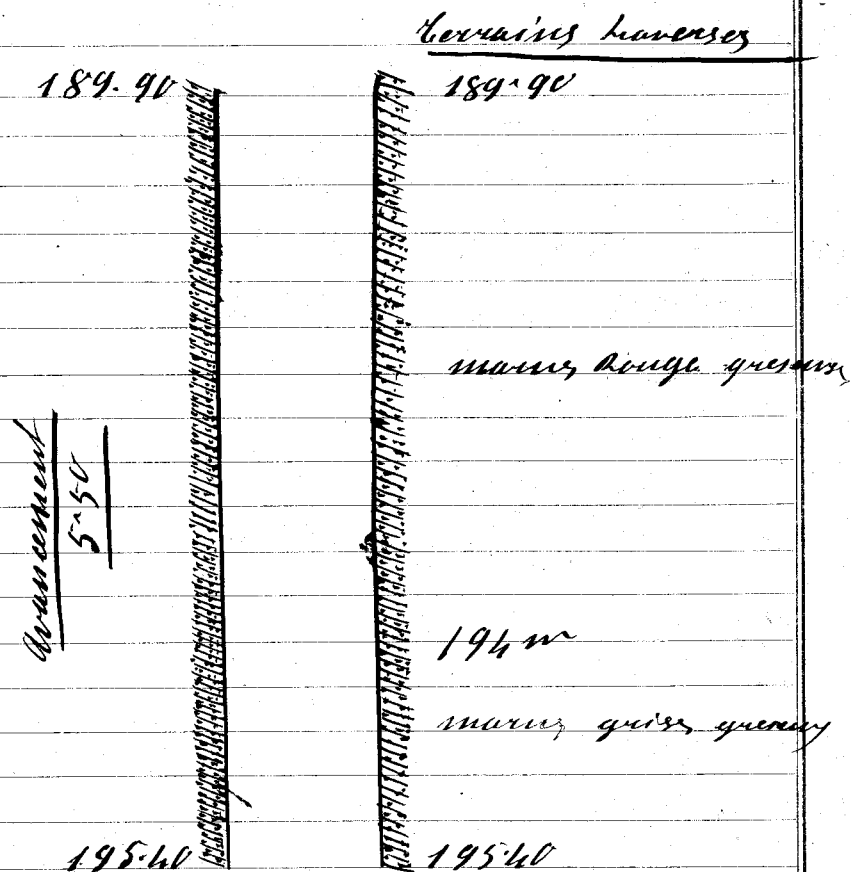 terrains traversés
189.90
189m90
marnes Rouge greseuse
Avancement
5m50
194 m
marnes grises greseuses
195.40
195.40